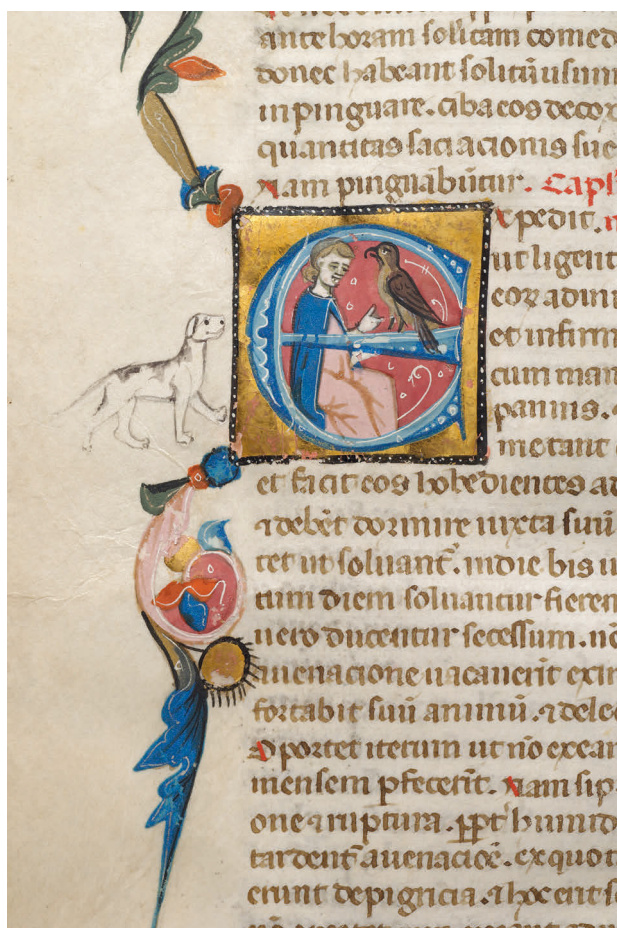 ante horam solitam comed
donec habeant solitū usum
inpinguare. ciba eos decox
quantitas saciacionis sue
Nam pinguabūtur. Capl
Expedit.
ut ligent
eoꝝ adini
et infirm
cum man
pannis.
metant
et facit eos hobedientes ad
⁊ debēt dormire iuxta suū
tet ut soluant᷑. in die bis u
tum diem soluantur fieren
uero ducentur secessum. nō
uenacione uacauerit exin
fortabit suū animū. ⁊ dele
Oportet iterum ut nō exean
mensem pfecerit. Nam si p
one ⁊ ruptura. ꝓpt᷑ humid
tardent᷑ a uenacioē. ex quo t
erunt de pigricia. ⁊ hoc erit s